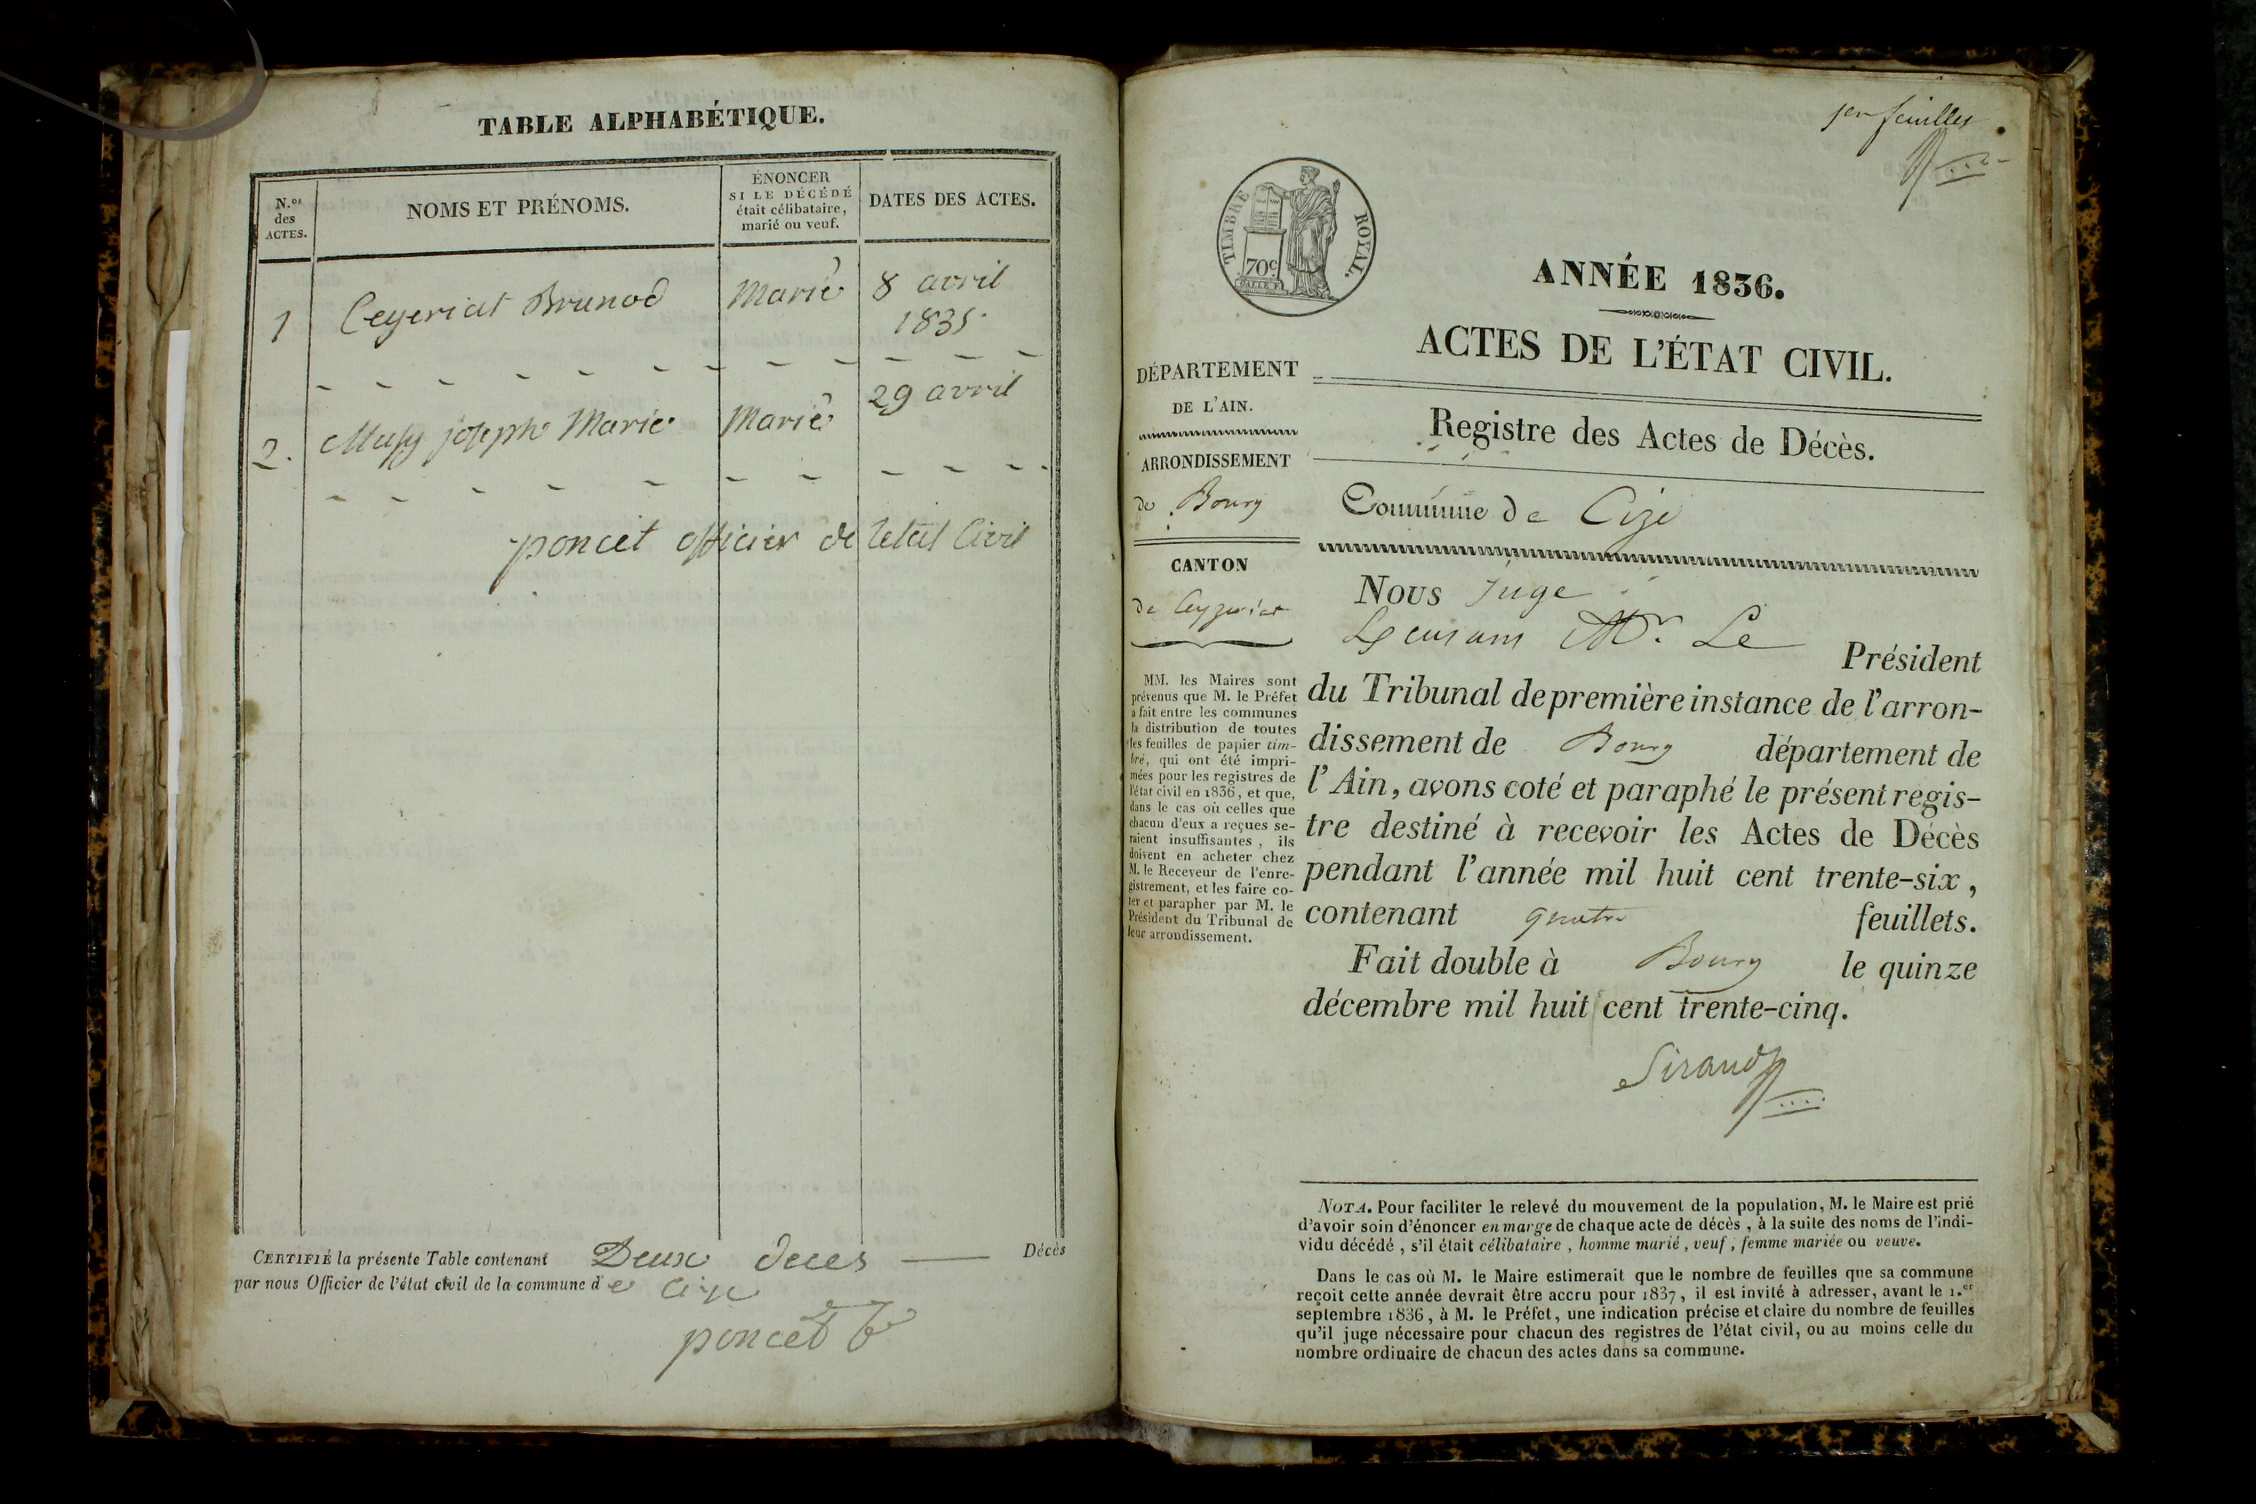 TABLE ALPHABÉTIQUE.
N.os des ACTES.
NOMS ET PRÉNOMS.
ÉNONCER
SI LE DÉCÉDÉ
était célibataire,
marié ou veuf.
DATES DES ACTES.
1 Ceyeriat Brunod Marié 8 avril
1835
2. Musy joseph Marie Marié 29 avril
poncet officier de letat Civil
CERTIFIÉ la présente Table contenant Deux deces Décès
par nous Officier de l'état civil de la commune de Cize
poncet
1er feuillet
TIMBRE ROYAL.
70c
ANNÉE 1836.
ACTES DE L'ÉTAT CIVIL.
Registre des Actes de Décès.
DÉPARTEMENT
DE L'AIN.
ARRONDISSEMENT
de Bourg
CANTON
de Ceyzeriat
MM. les Maires sont
prévenus que M. le Préfet
a fait entre les communes
la distribution de toutes
les feuilles de papier tim-
bré, qui ont été impri-
mées pour les registres de
l'état civil en 1836, et que,
dans le cas où celles que
chacun d'eux a reçues se-
raient insuffisantes, ils
doivent en acheter chez
M. le Receveur de l'enre-
gistrement, et les faire co-
ter et parapher par M. le
Président du Tribunal de
leur arrondissement.
Commune de Cize
Nous juge
Mr. Le Président
du Tribunal de première instance de l'arron-
dissement de Bourg département de
l'Ain, avons coté et paraphé le présent regis-
tre destiné à recevoir les Actes de Décès
pendant l'année mil huit cent trente-six,
contenant quatre feuillets.
Fait double à Bourg le quinze
décembre mil huit cent trente-cinq.
Sirand
NOTA. Pour faciliter le relevé du mouvement de la population, M. le Maire est prié
d'avoir soin d'énoncer en marge de chaque acte de décès, à la suite des noms de l'indi-
vidu décédé, s'il était célibataire, homme marié, veuf, femme mariée ou veuve.
Dans le cas où M. le Maire estimerait que le nombre de feuilles que sa commune
reçoit cette année devrait être accru pour 1837, il est invité à adresser, avant le 1.er
septembre 1836, à M. le Préfet, une indication précise et claire du nombre de feuilles
qu'il juge nécessaire pour chacun des registres de l'état civil, ou au moins celle du
nombre ordinaire de chacun des actes dans sa commune.